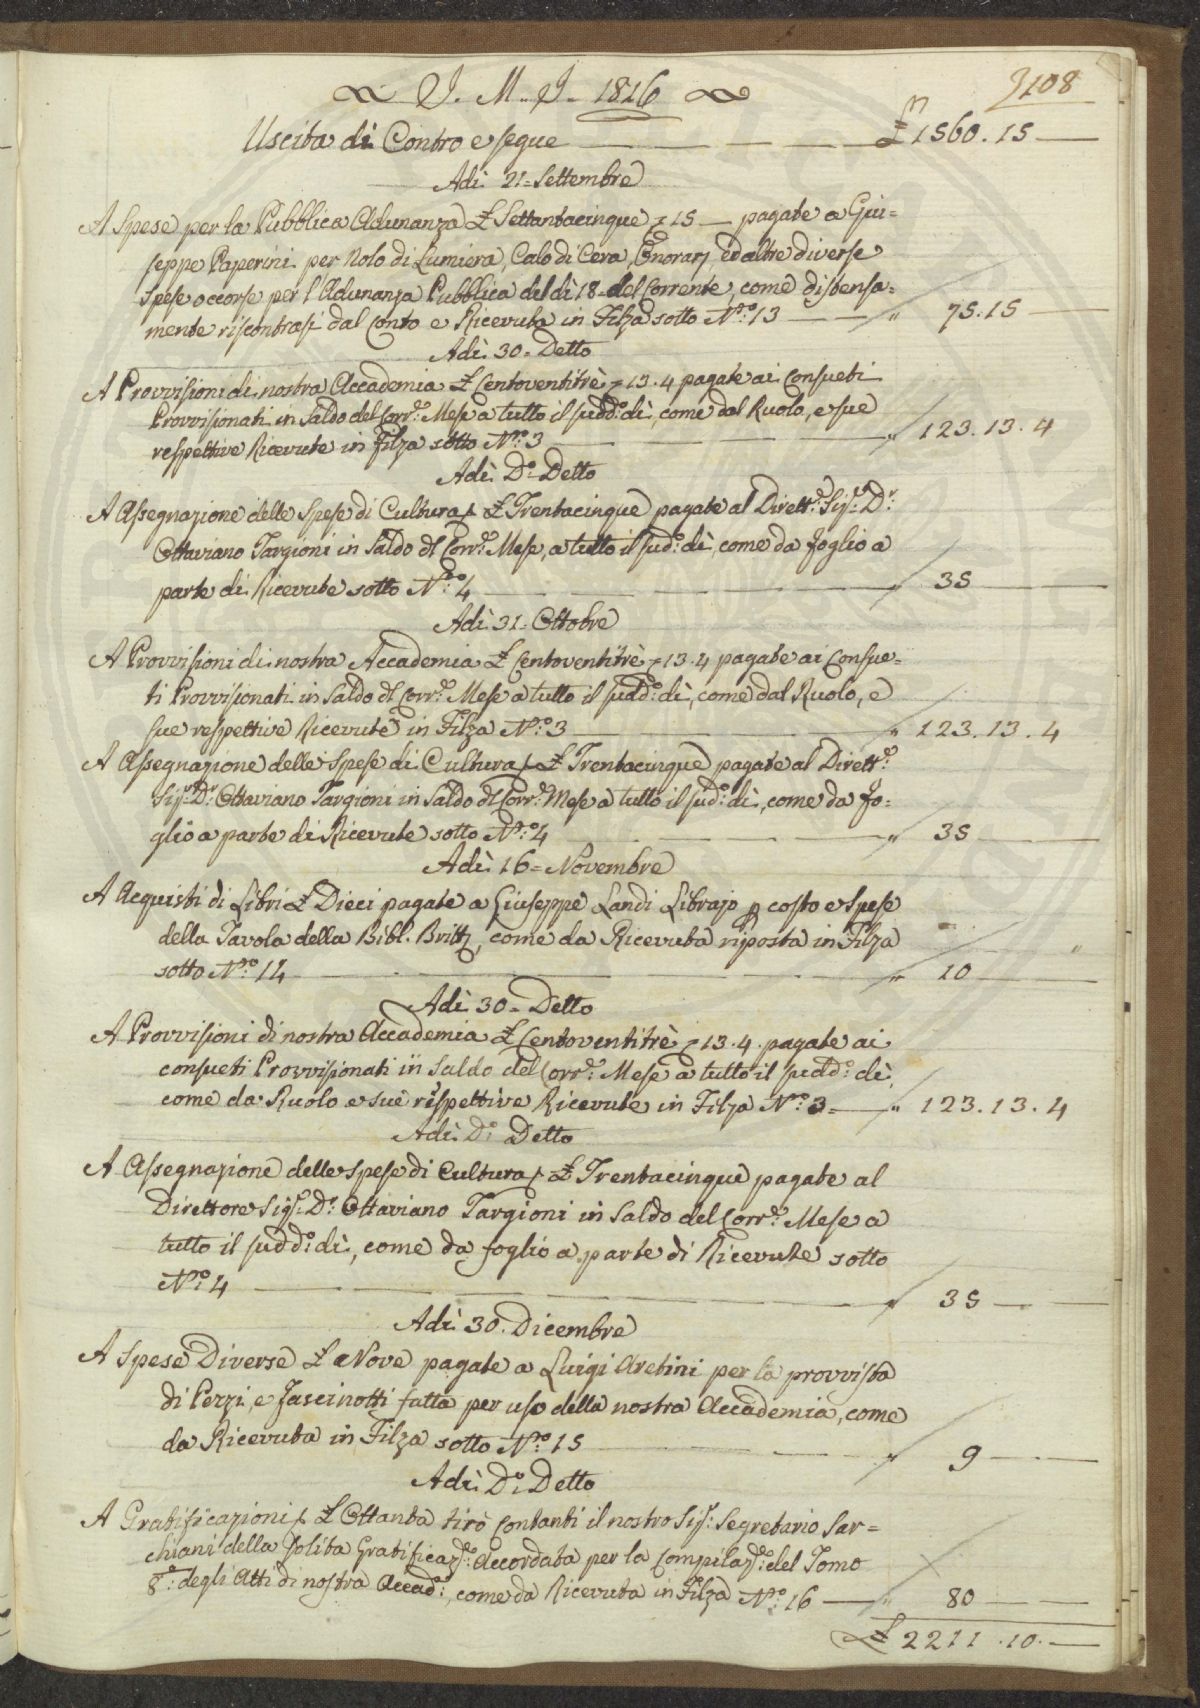 J. M. J. 1816
108
Uscita di Contro e segue £ 1560.15
Adì 21 = Settembre
A Spese per la Pubblica Adunanza £ Settantacinque 15 pagate a Giu=
seppe Paperini per Nolo di Lumiera, Calo di Cera, Onorarj, ed altre diverse
spese occorse per l'Adunanza Pubblica del dì 18 del Corrente, come distensa=
mente riscontrasi dal Conto e Ricevuta in Filza sotto N.° 13 " 75.15
Adì 30 = Detto
A Provvisioni di nostra Accademia £ Centoventitrè 13.4 pagate ai Consueti
Provvisionati in Saldo del Corr.e Mese a tutto il sudd.° dì, come dal Ruolo, e sue
respettive Ricevute in Filza sotto N.° 3 " 123.13.4
Adì D.° Detto
A Assegnazione delle Spese di Cultura £ Trentacinque pagate al Dirett.e Sig.r D.r
Ottaviano Targioni in Saldo del Corr.e Mese, a tutto il sud.° dì, come da foglio a
parte di Ricevute sotto N.° 4 " 35
Adì 31 = Ottobre
A Provvisioni di nostra Accademia £ Centoventitrè 13.4 pagate ai Consue=
ti Provvisionati in Saldo del Corr.e Mese a tutto il sudd.° dì, come dal Ruolo, e
sue respettive Ricevute in Filza N.° 3 " 123.13.4
A Assegnazione delle Spese di Cultura £ Trentacinque pagate al Dirett.e
Sig.r D.r Ottaviano Targioni in Saldo del Corr.e Mese a tutto il sud.° dì, come da fo=
glio a parte di Ricevute sotto N.° 4 " 35
Adì 16 = Novembre
A Acquisti di Libri £ Dieci pagate a Giuseppe Landi Librajo p costo e Spese
della Tavola della Bibl. Britt., come da Ricevuta riposta in Filza
sotto N.° 14 " 10
Adì 30 = Detto
A Provvisioni di nostra Accademia £ Centoventitrè 13.4. pagate ai
consueti Provvisionati in Saldo del Corr.e Mese a tutto il sudd.° dì,
come da Ruolo e sue rispettive Ricevute in Filza N.° 3 " 123.13.4
Adì D.° Detto
A Assegnazione delle Spese di Cultura £ Trentacinque pagate al
Direttore Sig.r D.r Ottaviano Targioni in Saldo del Corr.e Mese a
tutto il sudd.° dì, come da foglio a parte di Ricevute sotto
N.° 4 " 35
Adì 30. Dicembre
A Spese Diverse £ Nove pagate a Luigi Aretini per la provvista
di Pezzi, e Fascinotti fatta per uso della nostra Accademia, come
da Ricevuta in Filza sotto N.° 15 " 9
Adì D.° Detto
A Gratificazioni £ Ottanta tirò Contanti il nostro Sig.r Segretario Sar=
chiani della solita Gratificaz.e Accordata per la Compilaz.e del Tomo
8.° degli Atti di nostra Accad.a, come da Ricevuta in Filza N.° 16 " 80
£ 2211.10.